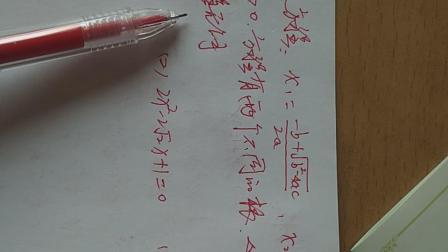 方程: x₁ = (-b+√(b²-4ac))/2a , x₂
>0. 方程有两个不同的根. △
), 2x²-2√2x+1=0